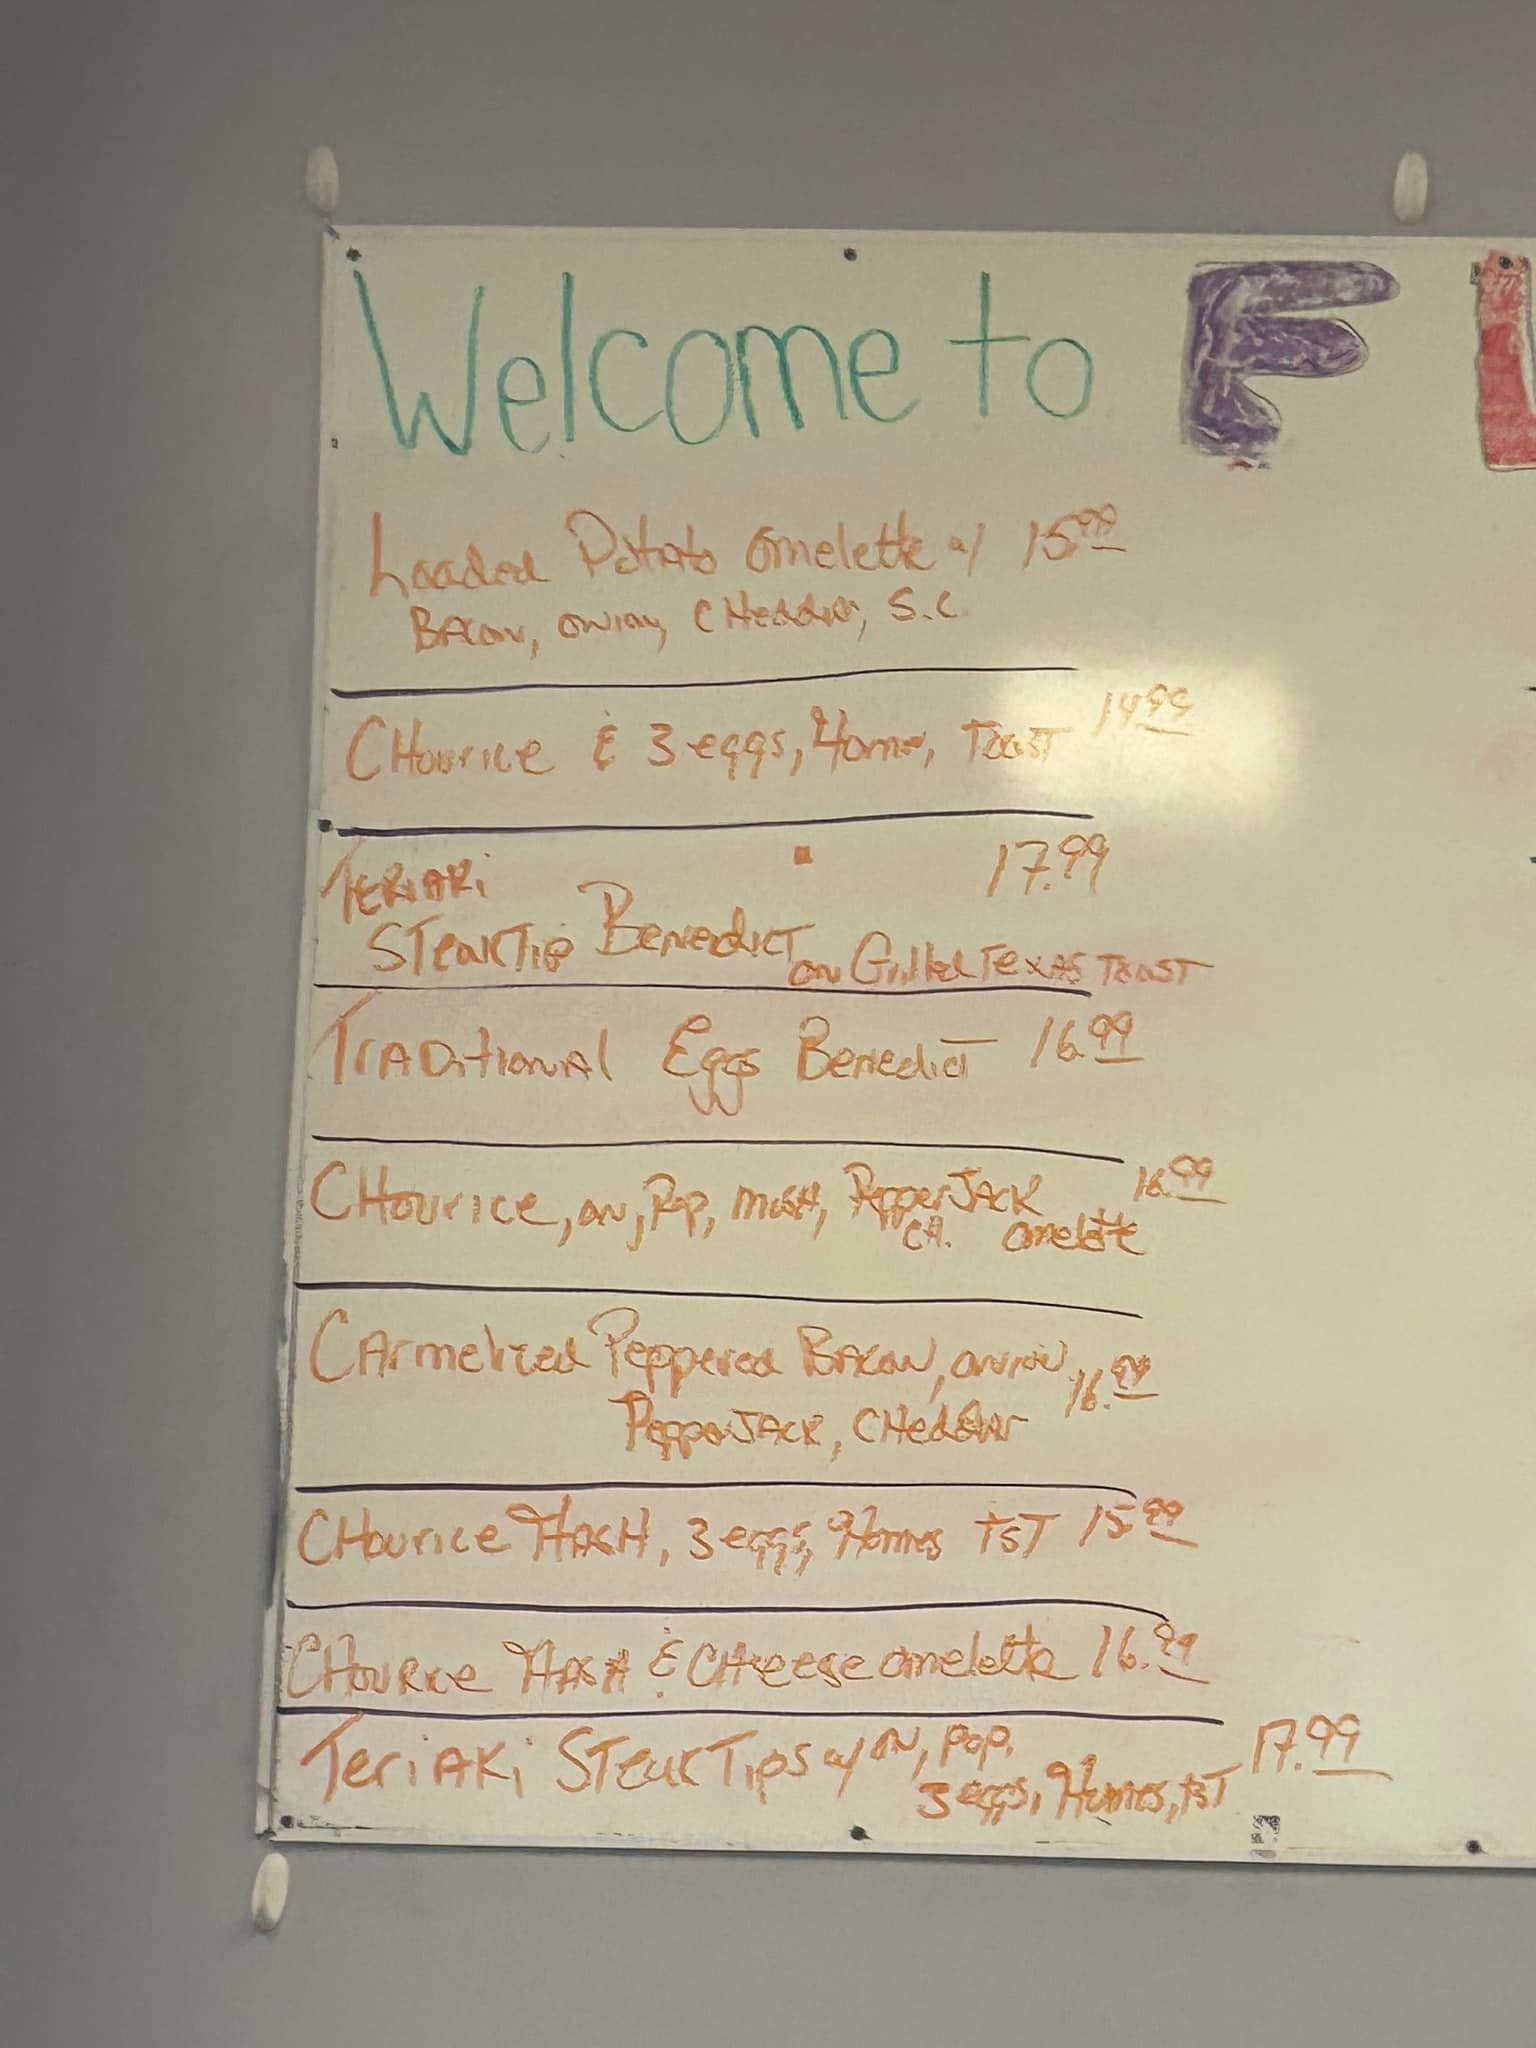 Welcome to F
Loaded Potato Omelette w/ 15.99
Bacon, onion, CHeddar, S.C.
CHourice & 3 eggs, Home, Toast 14.99
Teriaki 17.99
STeak Tip Benedict on Grilled Texas Toast
Traditional Eggs Benedict 16.99
CHourice, on, Pep, musH, PepperJack 16.99
CH. omelette
Carmelized Peppered Bacon, onion 16.99
PepperJack, CHeddar
CHourice Hash, 3 eggs, Homes TsT 15.99
CHourice Hash & CHeese omelette 16.99
Teriaki STeak Tips w/ on, pep, 17.99
3 eggs, Homes, TsT